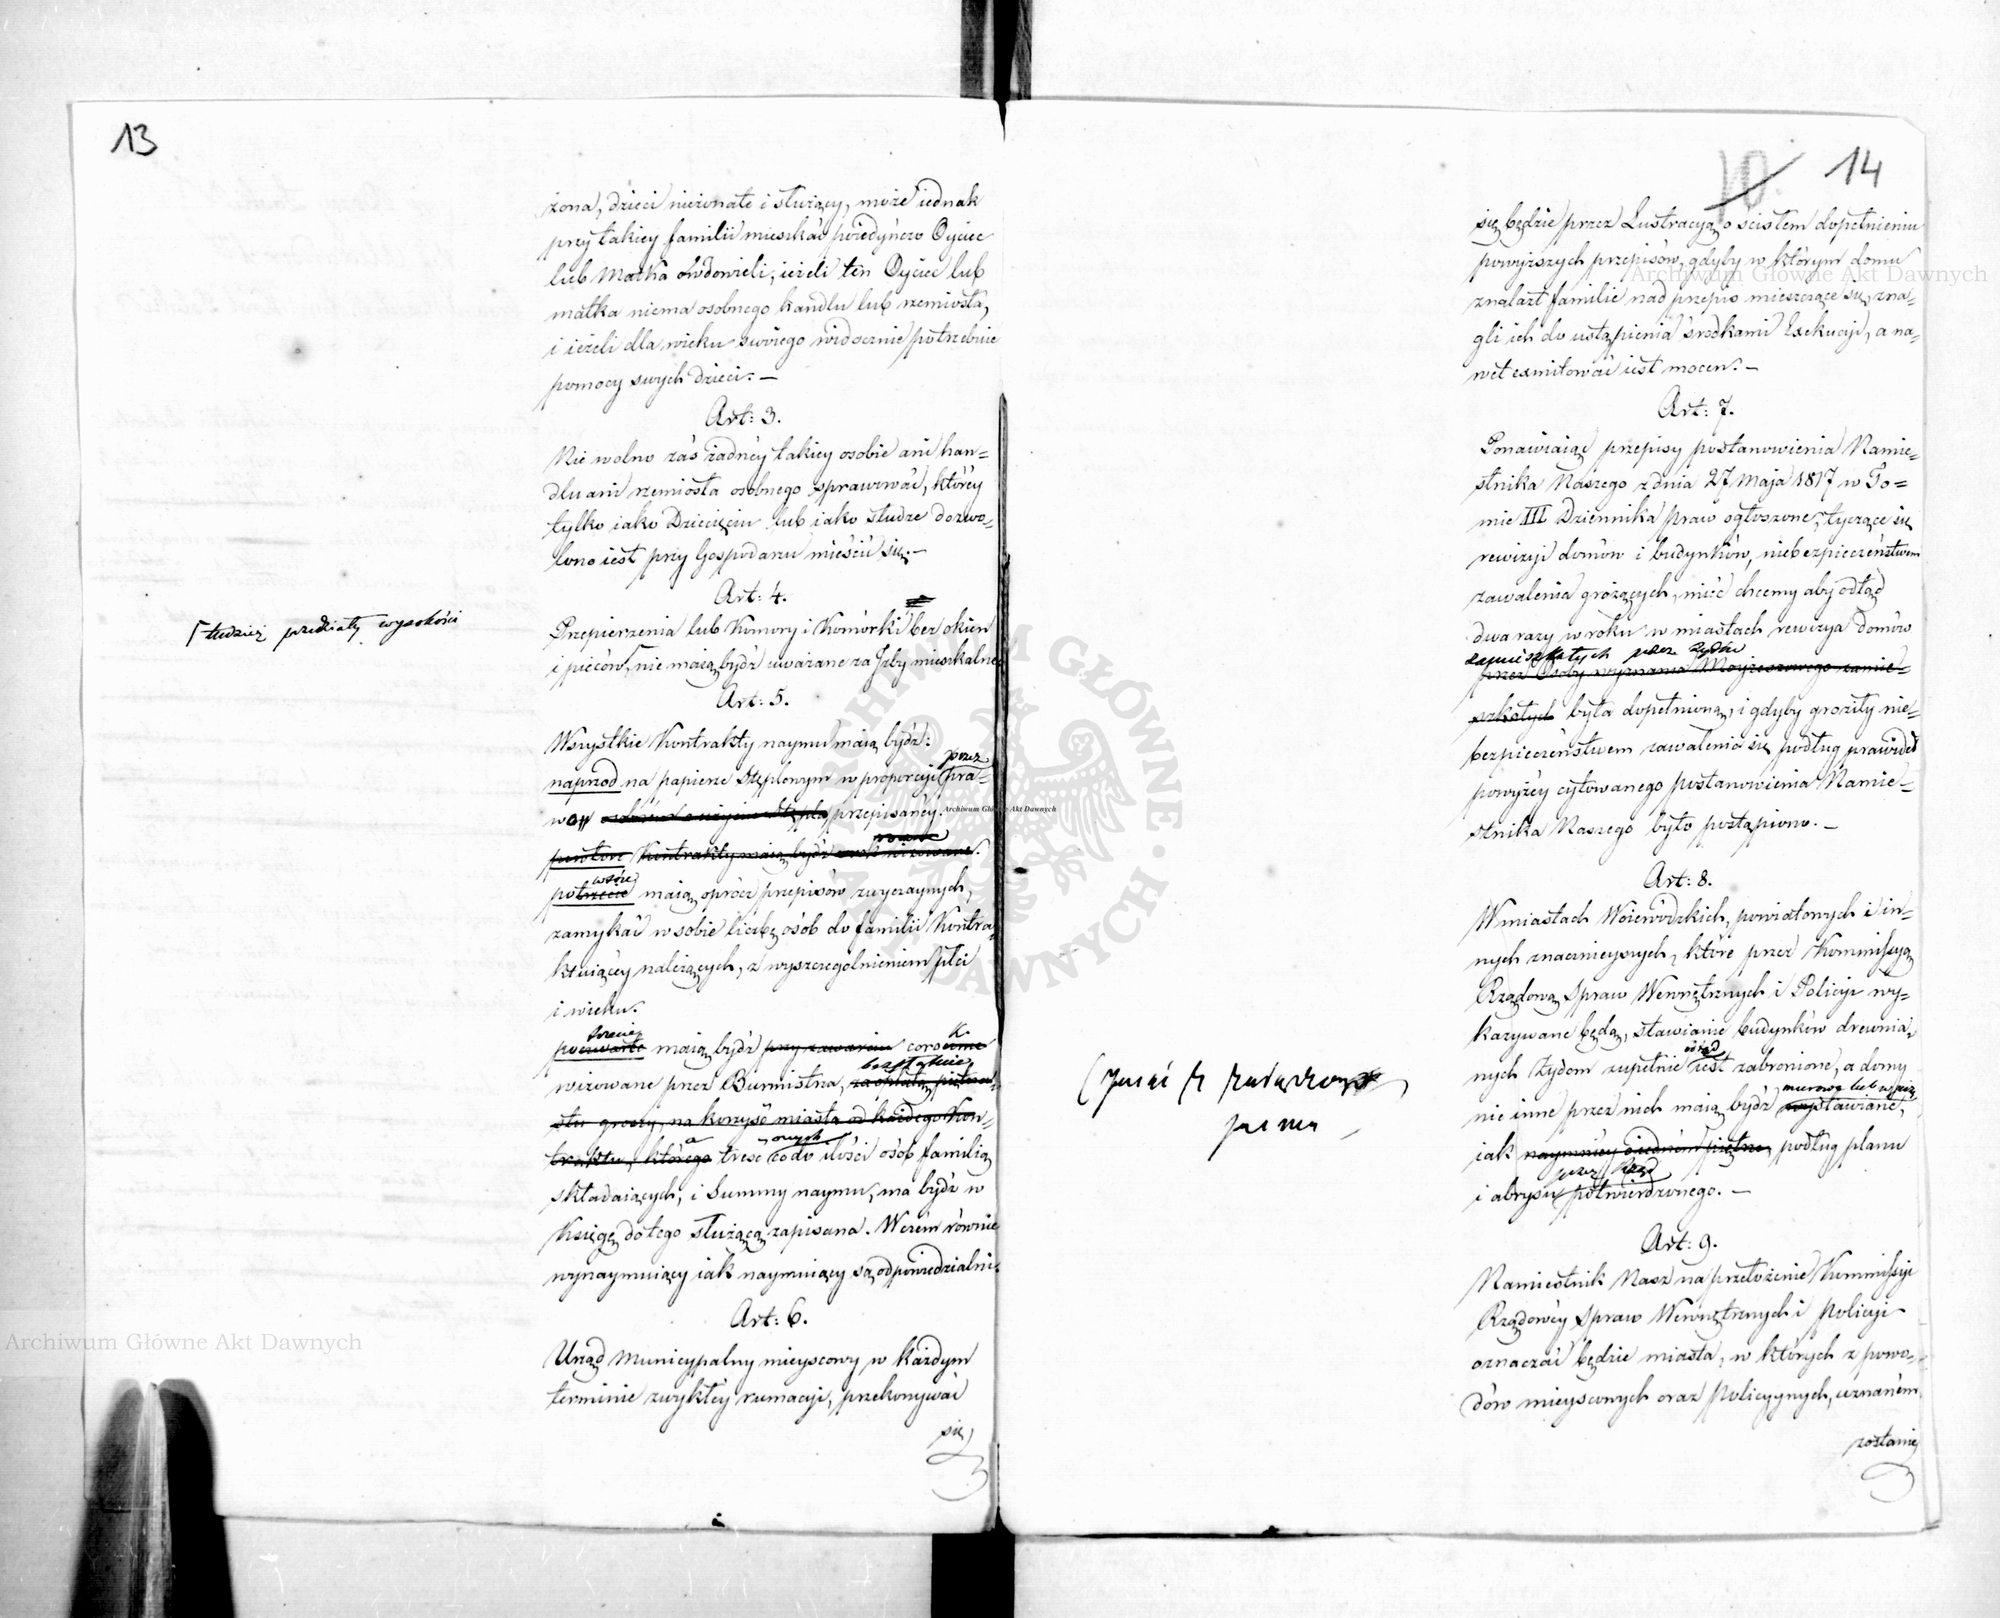 13
żona, dzieci nieżonate i służący, może iednak
przy takiey familii mieszkać poiedyńczo Oyciec
lub Matka owdowieli, ieżeli ten Oyciec lub
matka niema osobnego handlu lub rzemiosła,
i ieżeli dla wieku swoiego widocznie potrzebuie
pomocy swych dzieci. —
Art: 3.
Nie wolno zaś żadnéy takiey osobie ani han=
dlu ani rzemiosła osobnego sprawować, któréy
tylko iako Dziecięciu lub iako słudze dozwo=
lono iest przy Gospodarzu mieścić się. —
Art: 4.
Przepierzenia lub Komory i Komórki bez okien
i pieców, nie maią bydź uważane za Izby mieszkalne
⌈tudzież przedziały wysokości
Art: 5.
Wszystkie Kontrakty naymu maią bydź:
przez
naprzod na papierze stęplowym w proporcyi pra=
wo przepisanéy.
powtóre Kontrakty maią bydź
wtóre
potrzecie maią oprócz przepisów zwyczaynych,
zamykać w sobie liczbę osób do familii Kontra=
ktuiącéy należących, z wyszczególnieniem płci
i wieku.
trzecie
poczwarte maią bydź przy zawarciu corocznie
bezpłatnie
wizowane przez Burmistrza, za opłatą piętna=
stu groszy, na korzyść miasta od każdego Kon=
a onych
traktu, którego treść co do ilości osób familią
składaiących, i Summy naymu, ma bydź w
Księgę do tego służącą zapisana. W czém równie
wynaymuiący iak naymuiący są odpowiedzialni.
Art: 6.
Urząd Municypalny mieyscowy w każdym
terminie zwykłéy rumacyi, przekonywać
się
10. 14
się będzie przez Lustracyą o ścisłem dopełnieniu
powyższych przepisów, gdyby w którym domu
znalazł familie nad przepis mieszczące się, zna=
gli ich do ustąpienia środkami Exekucyi, a na=
wet exmitować iest mocen. —
Art: 7.
Ponawiaiąc przepisy postanowienia Namie=
stnika Naszego z dnia 27 Maja 1817 w To=
mie III Dziennika praw ogłoszone, tyczące się
rewizyi domów i budynków, niebezpieczeństwem
zawalenia grożących, mieć chcemy aby odtąd
dwa razy w roku w miastach rewizya domów
zamieszkałych przez Żydów
przez Osoby wyznania Mojżeszowego zamie=
szkałych była dopełnioną, i gdyby groziły nie=
bezpieczeństwem zawalenia się podług prawideł
powyżéy cytowanego postanowienia Namie=
stnika Naszego było postąpiono. —
Art: 8.
W miastach Woiewódzkich, powiatowych i in=
nych znacznieyszych, które przez Kommissyą
Rządową Spraw Wewnętrznych i Policyi wy=
kazywane będą, stawianie budynków drewnia=
odtąd
nych Żydom zupełnie iest zabronione, a domy
murowe lub w pruskie
nie inne przez nich maią bydź wystawiane,
iak naymniéy o iedném piętrze, podług planu
przez Rząd
i abrysu potwierdzonego. —
Art: 9.
Namiestnik Nasz na przełożenie Kommissyi
Rządowéy Spraw Wewnętrznych i Policyi
oznaczać będzie miasta, w których z powo=
dów mieyscowych oraz Policyynych, uznaném
zostanie
Archiwum Główne Akt Dawnych
Archiwum Główne Akt Dawnych
Archiwum Główne Akt Dawnych
ARCHIWUM GŁÓWNE AKT DAWNYCH